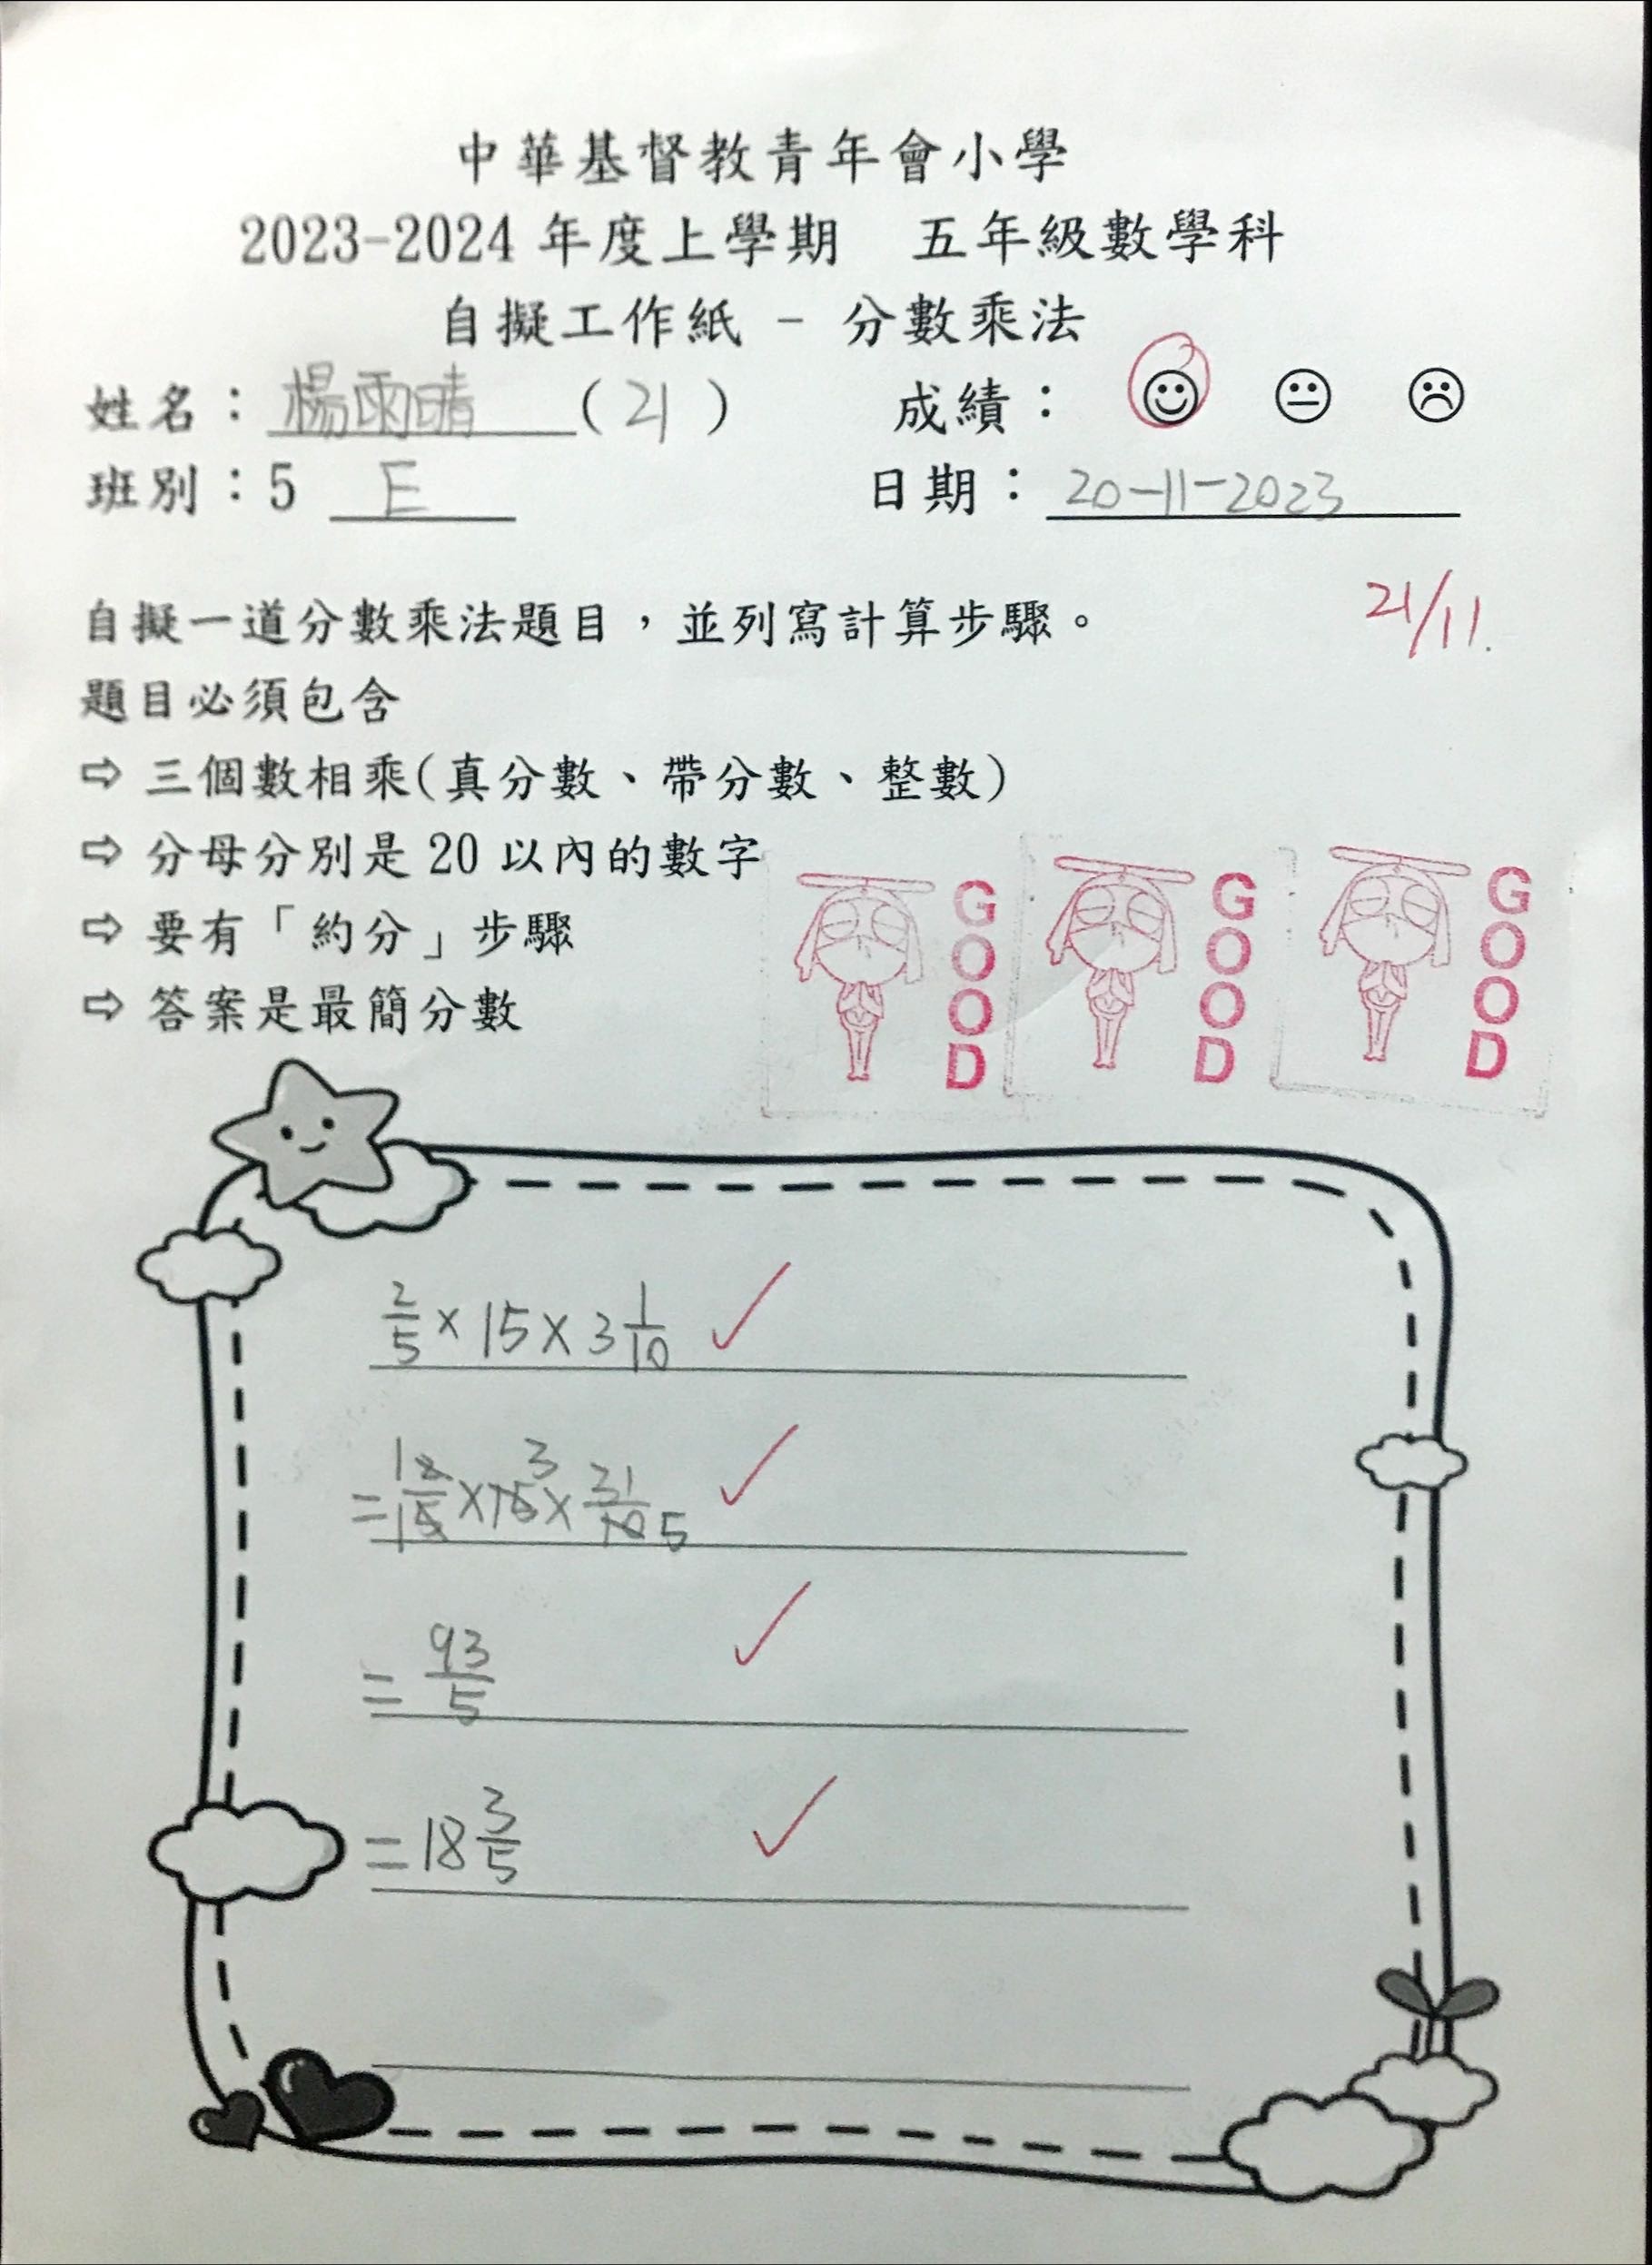 中華基督教青年會小學
2023-2024 年度上學期 五年級數學科
自擬工作紙 - 分數乘法
姓名：楊雨晴 (21) 成績：
班別：5 E 日期：20-11-2023
21/11.
自擬一道分數乘法題目，並列寫計算步驟。
題目必須包含
⇨ 三個數相乘(真分數、帶分數、整數)
⇨ 分母分別是 20 以內的數字
⇨ 要有「約分」步驟
⇨ 答案是最簡分數
GOOD GOOD GOOD
2/5 × 15 × 3 1/10
= 1 2/1 5 × 15 3 × 31/10 5
= 93/5
= 18 3/5